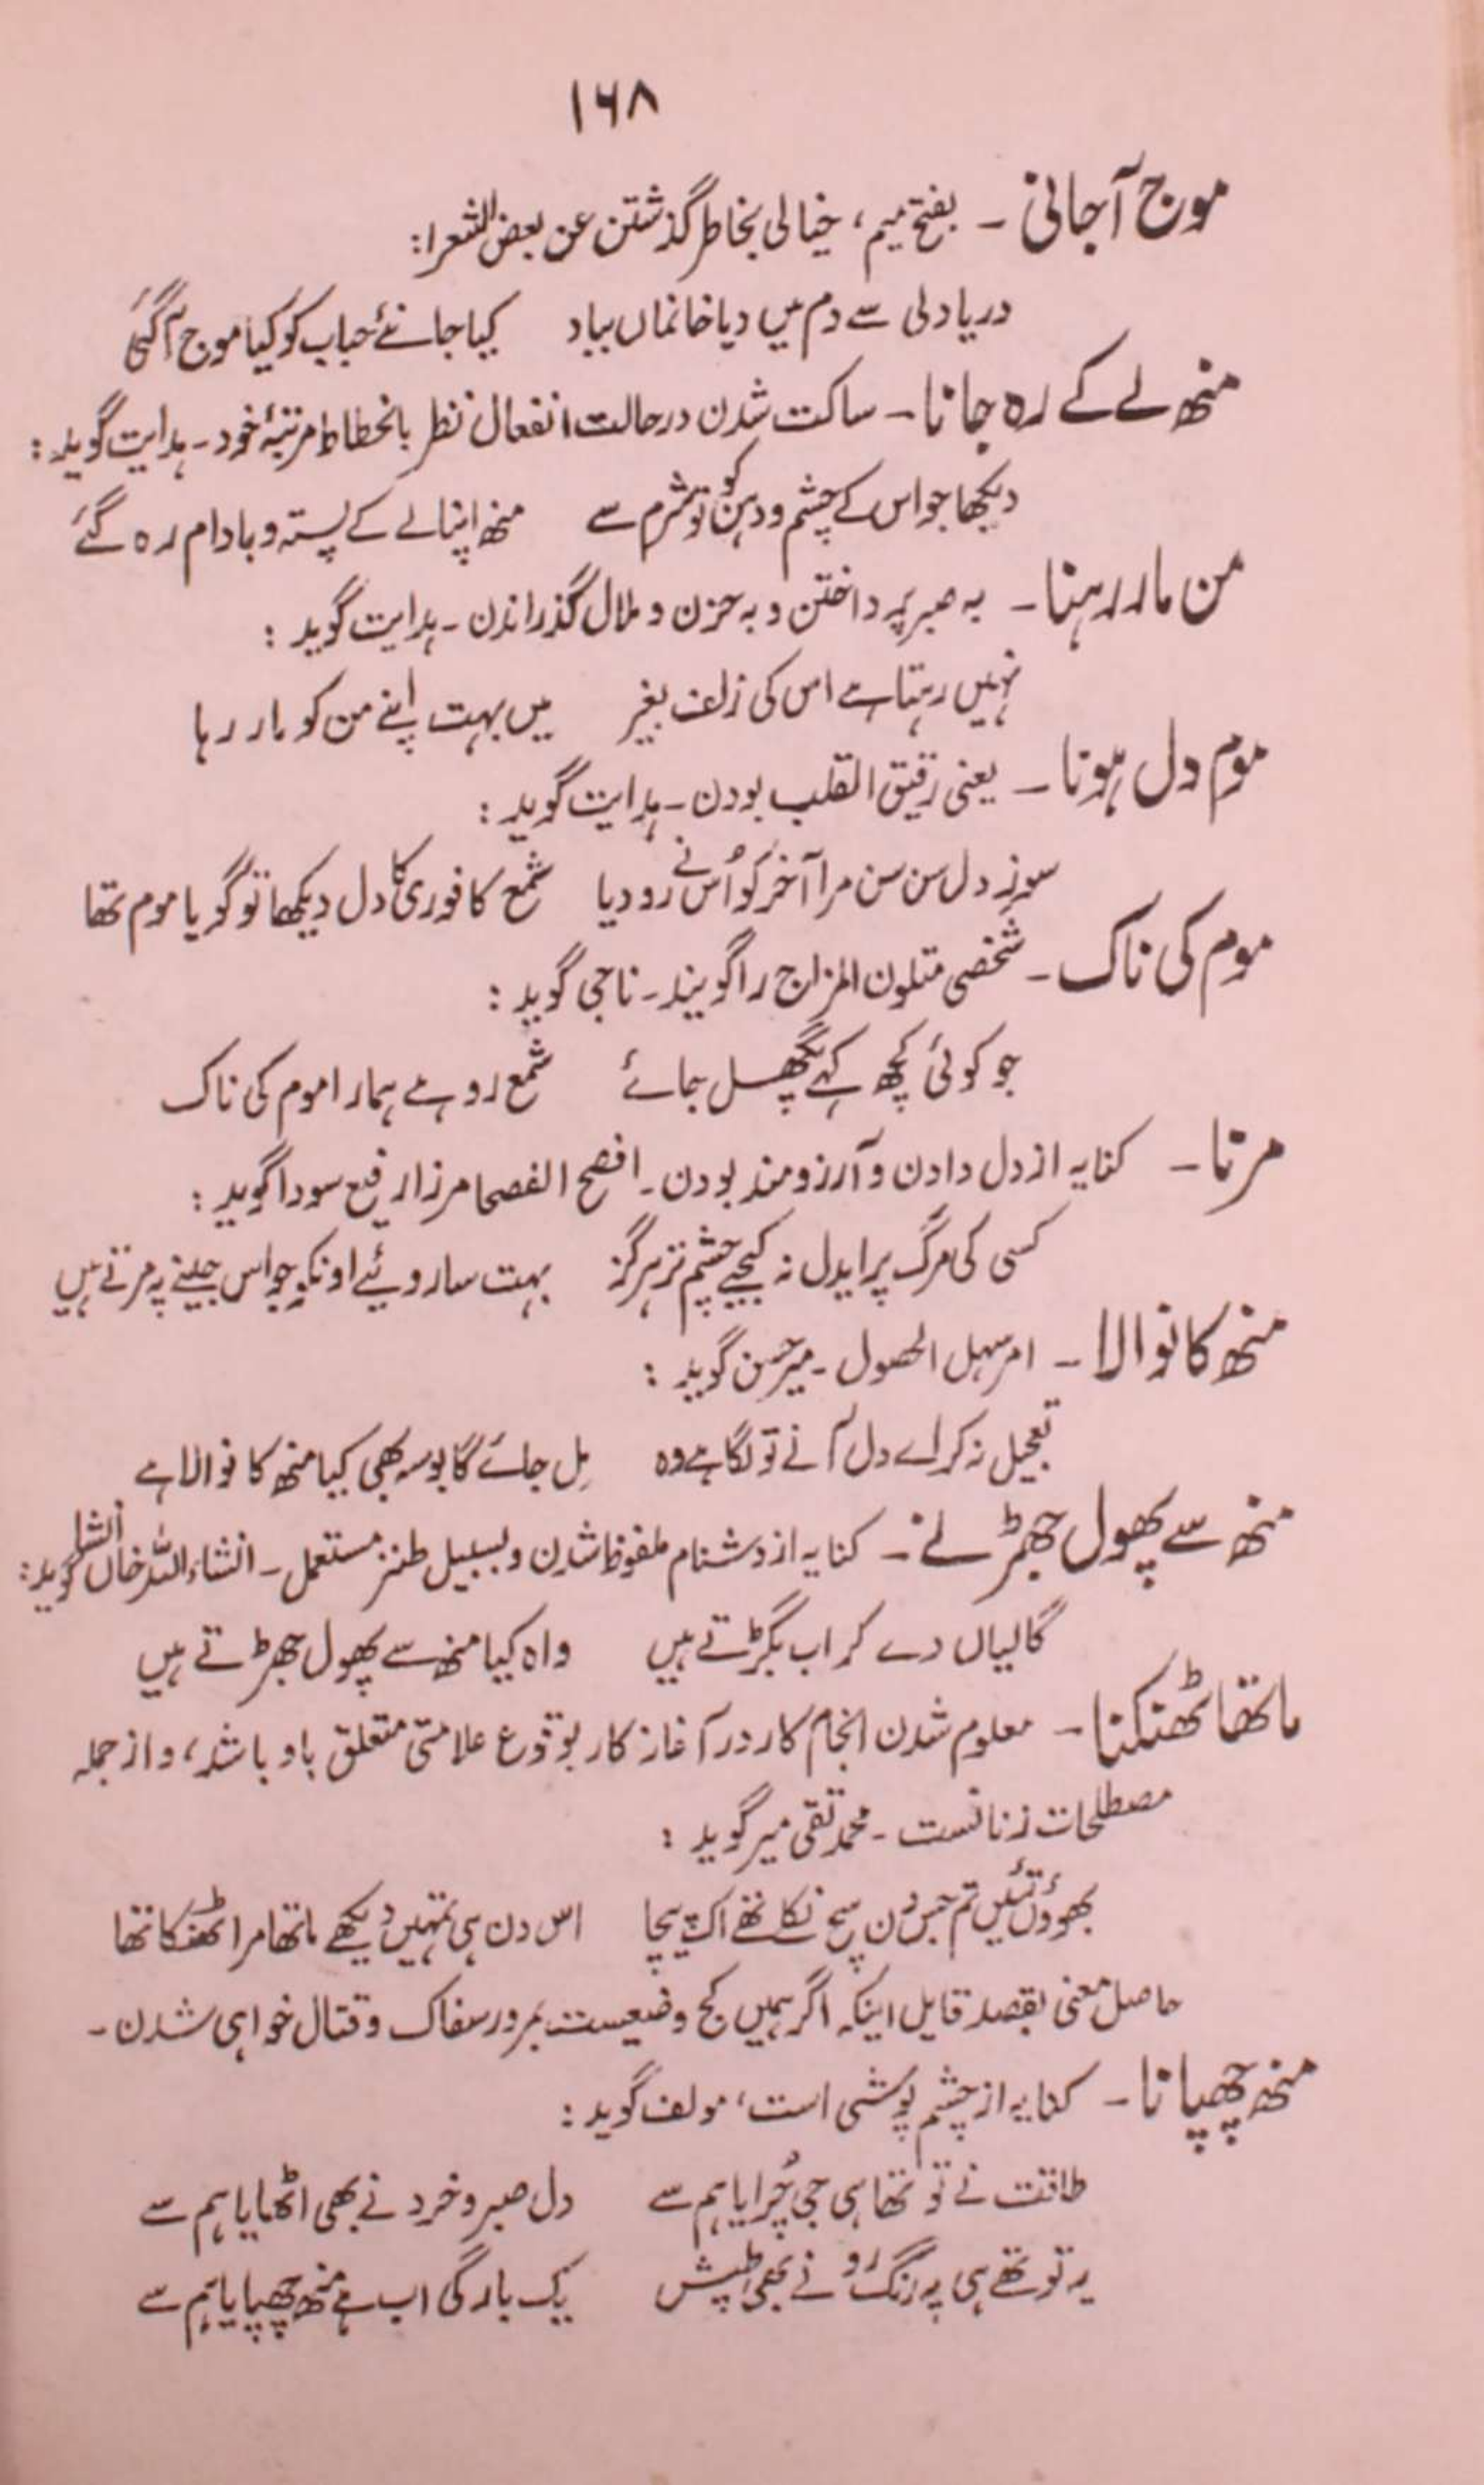 ۱۶۸
موج آجانی ـ بفتح میم، خیالی بخاطر گذشتن عن بعض الشعرا:
دریا دلی سے دم میں دیا خانماں بباد کیا جانئے حباب کو کیا موج آ گئی
منھ لے کے رہ جانا ـ ساکت شدن در حالت انفعال نظر بانحطاط مرتبۂ خود ـ ہدایت گوید:
دیکھا جو اس کے چشم و دہن کو تو شرم سے منھ اپنا لے کے پستہ و بادام رہ گئے
من مار رہنا ـ بہ صبر پرداختن و بہ حزن و ملال گذراندن ـ ہدایت گوید:
نہیں رہتا ہے اس کی زلف بغیر میں بہت اپنے من کو مار رہا
موم دل ہونا ـ یعنی رقیق القلب بودن ـ ہدایت گوید:
سوز دل سن سن مرا آخر کو اُس نے رو دیا شمع کافوری کا دل دیکھا تو گویا موم تھا
موم کی ناک ـ شخصی متلون المزاج را گویند ـ ناجی گوید:
جو کوئی کچھ کہے پگھل جائے شمع رو ہے ہمارا موم کی ناک
مرنا ـ کنایہ از دل دادن و آرزومند بودن ـ افصح الفصحا مرزا رفیع سودا گوید:
کسی کی مرگ پر ایدل نہ کیجیے چشم تر ہرگز بہت سا روئیے اونکو جو اس جینے پہ مرتے ہیں
منھ کا نوالا ـ امر سہل الحصول ـ میر حسن گوید:
تعجیل نہ کر اے دل آنے تو لگا ہے وہ مِل جائے گا بوسہ بھی کیا منھ کا نوالا ہے
منھ سے پھول جھڑنے ـ کنایہ از دشنام ملفوظ شدن و بسبیل طنز مستعمل ـ انشاء اللہ خاں انشا گوید:
گالیاں دے کر اب بگڑتے ہیں واہ کیا منھ سے پھول جھڑتے ہیں
ماتھا ٹھنکنا ـ معلوم شدن انجام کار در آغاز کار بوقوع علامتی متعلق باو باشد، و از جملہ
مصطلحات زنانست ـ محمد تقی میر گوید:
بھوؤں تئیں تم جس دن سج نکلے تھے اک پیچا اس دن ہی تمہیں دیکھے ماتھا مرا ٹھنکا تھا
حاصل معنی بقصد قایل اینکہ اگر ہمیں کج وضعیست بمرور سفاک و قتال خواہی شدن ـ
منھ چھپانا ـ کنایہ از چشم پوشی است، مولف گوید:
طاقت نے تو تھا ہی جی چُرایا ہم سے دل صبر و خرد نے بھی اٹھایا ہم سے
یہ تو تھے ہی پہ رنگ رو نے بھی طپش یک بارگی اب ہے منھ چھپایا ہم سے